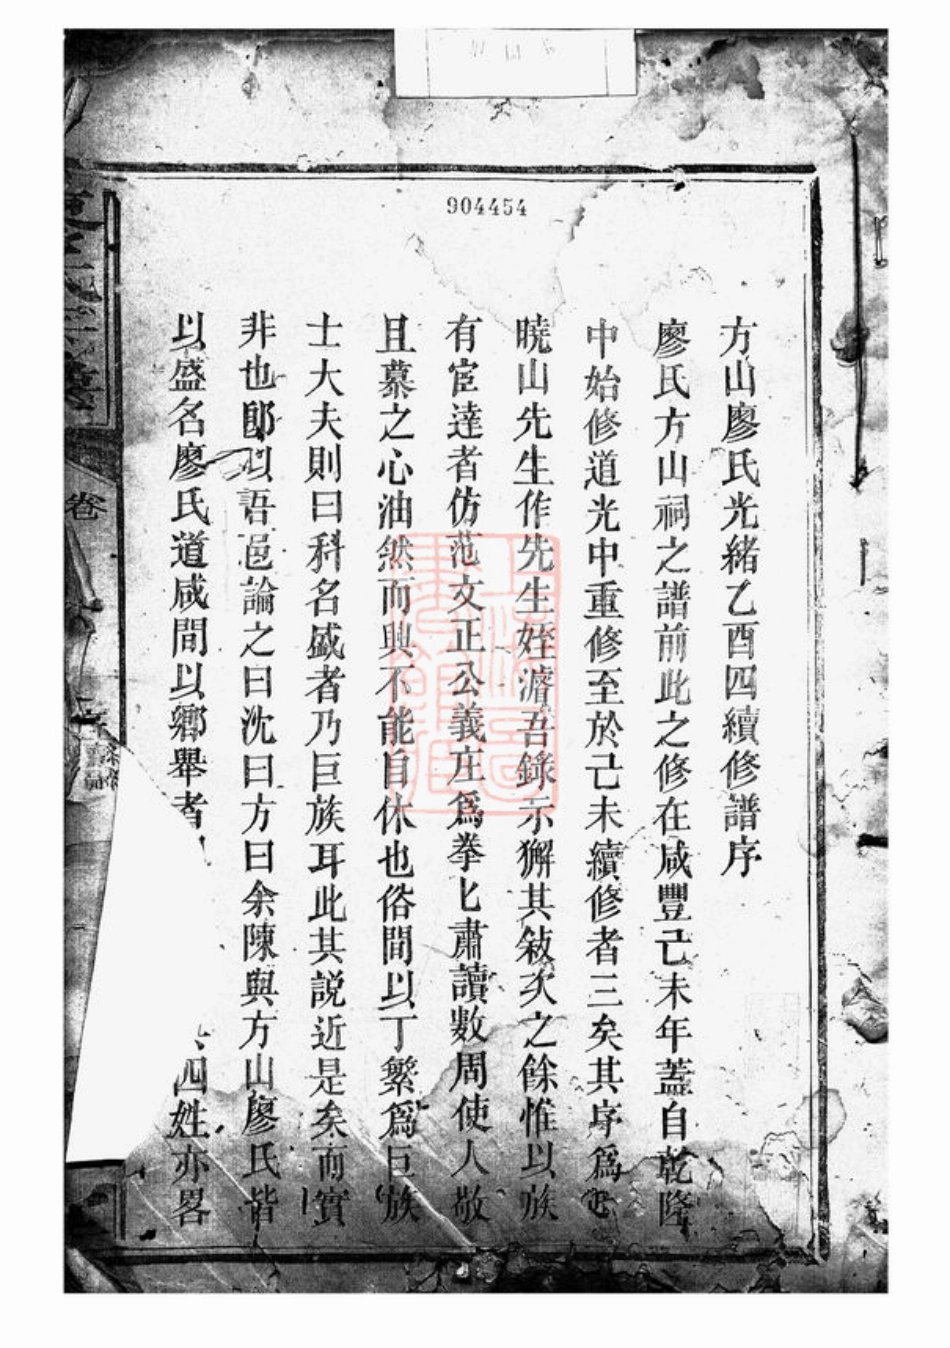 904454
方山廖氏光緒乙酉四續修譜序
廖氏方山祠之譜前此之修在咸豐己未年蓋自乾隆
中始修道光中重修至於己未續修者三矣其序爲
曉山先生作先生姪濬吾錄示獬其敍次之餘惟以族
有宦達者仿范文正公義庄爲拳匕肅讀數周使人敬
且慕之心油然而興不能自休也俗間以丁繁爲巨族
士大夫則曰科名盛者乃巨族耳此其説近是矣而實
非也卽以吾邑論之曰沈曰方曰余陳與方山廖氏皆
以盛名廖氏道咸間以鄉舉者
四姓亦畧
卷